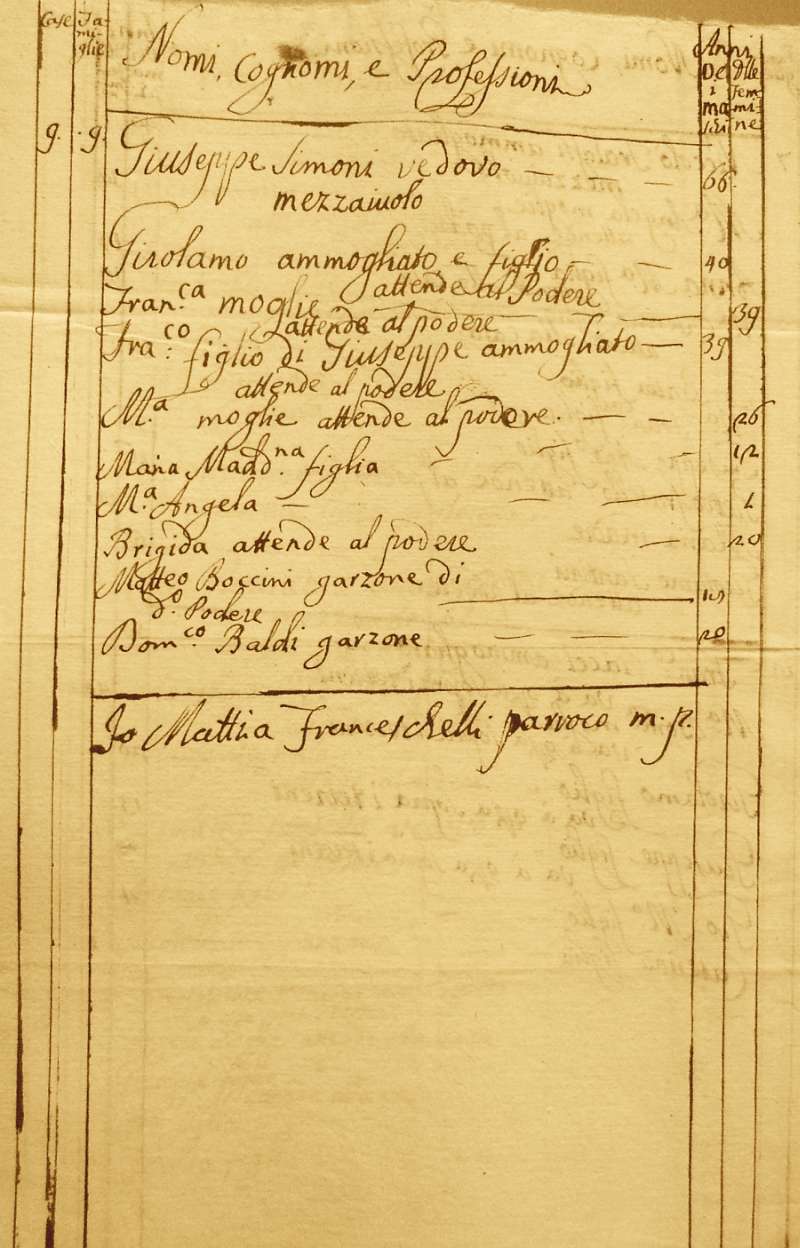 Case Famiglie Nomi, Cognomi, e Professioni Anni De i maschi Anni delle femmine
9. 9. Giuseppe Simoni vedovo — — — 66.
mezzaiuolo
Girolamo ammogliato, e figlio — — 40
attende al Podere
Fran.ca moglie — — 39
attende al podere
Fra.co figlio di Giuseppe ammogliato — 39
attende al podere
M.a moglie attende al podere. — — 26
Maria Madd.na figlia — — - 12
M.a Angela — — — 1
Brigida attende al podere — 20
Matteo Boccini garzone di
d.o Podere — 19
Dom.co Baldi garzone — — 20
Io Mattia Franceschelli parroco m. p.